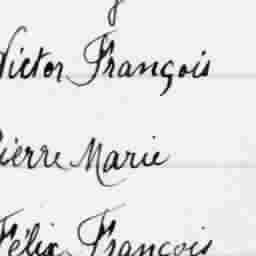 Victor François
Pierre Marie
Félix François